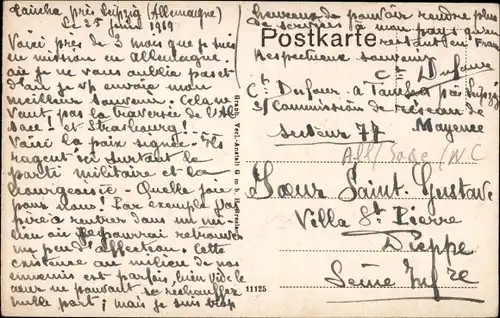 Taucha près Leipzig (Allemagne)
Le 25 juin 1919
Voici près de 3 mois que je suis
en mission en Allemagne
où je ne vous oublie pas et
d'où je vs envoie mon
meilleur souvenir. Cela ne
vaut pas la traversée de l'Al
sace! et Strasbourg!
Voici la paix signée. Ils
ragent ici surtout le
parti militaire et la
bourgeoisie. Quelle joie
pour nous! Par exemple
j'aspire à rentrer dans un mi
lieu où je pourrai retrouver
un peu d'affection. Cette
existence au milieu de nos
ennemis est parfois bien vide le
cœur ne pouvant se réchauffer
nulle part; mais je suis trop
heureux de pouvoir rendre plus
de services à mon pays qu'en
restant en France
Respectueux souvenir
Postkarte
Ct Dufour
Ct Dufour à Taucha près Leipzig
s/ Commission de réseau de
Mayence
secteur 77
Sœur Saint Gustave
Villa St Pierre
Dieppe
Seine Infre
11125